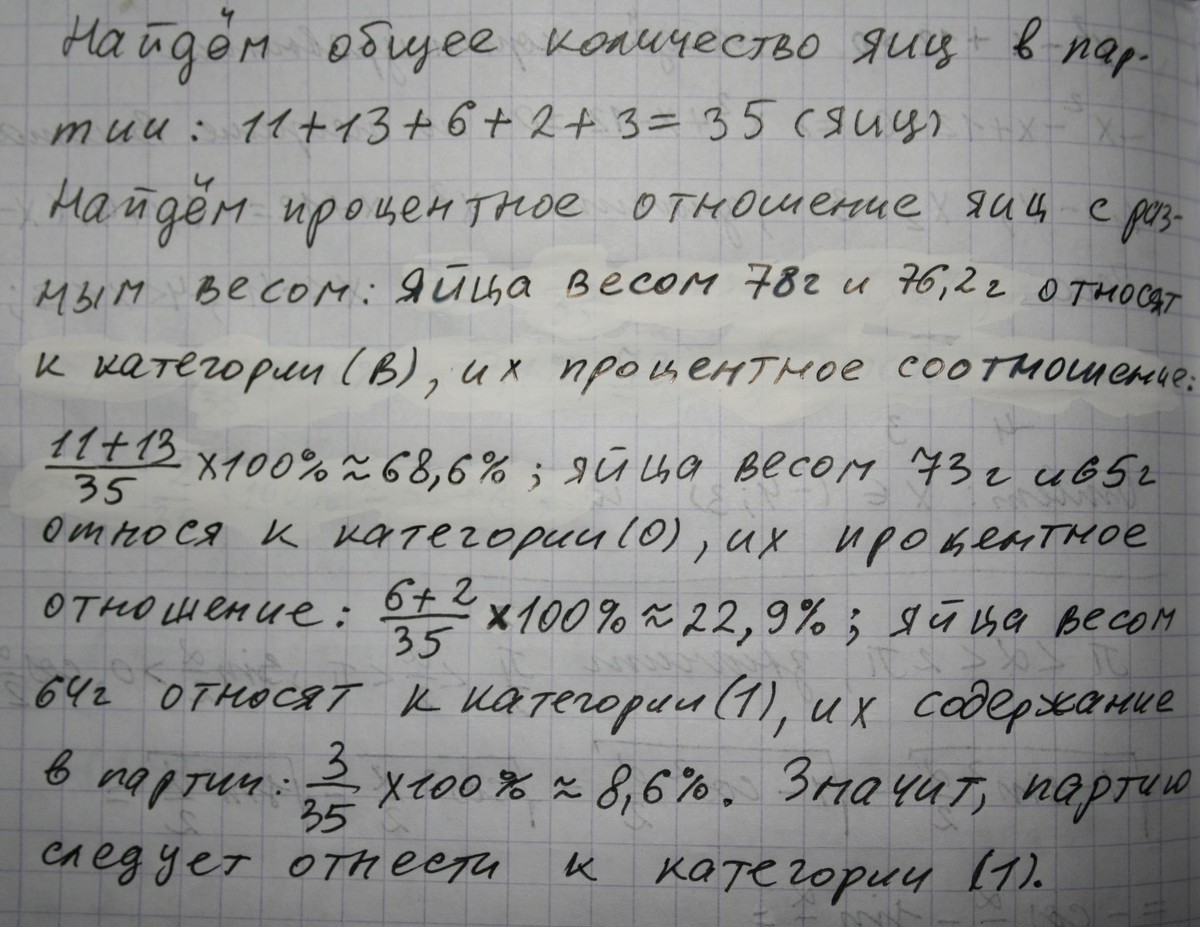 Найдём общее количество яиц в пар-
тии: 11+13+6+2+3=35 (яиц)
Найдём процентное отношение яиц с раз-
ным весом: яйца весом 78г и 76,2г относят
к категории (В), их процентное соотношение:
11+13/35 ×100% ≈ 68,6%; яйца весом 73г и 65г
относя к категории (0), их процентное
отношение: 6+2/35 ×100% ≈ 22,9%; яйца весом
64г относят к категории (1), их содержание
в партии: 3/35 ×100% ≈ 8,6%. Значит, партию
следует отнести к категории (1).